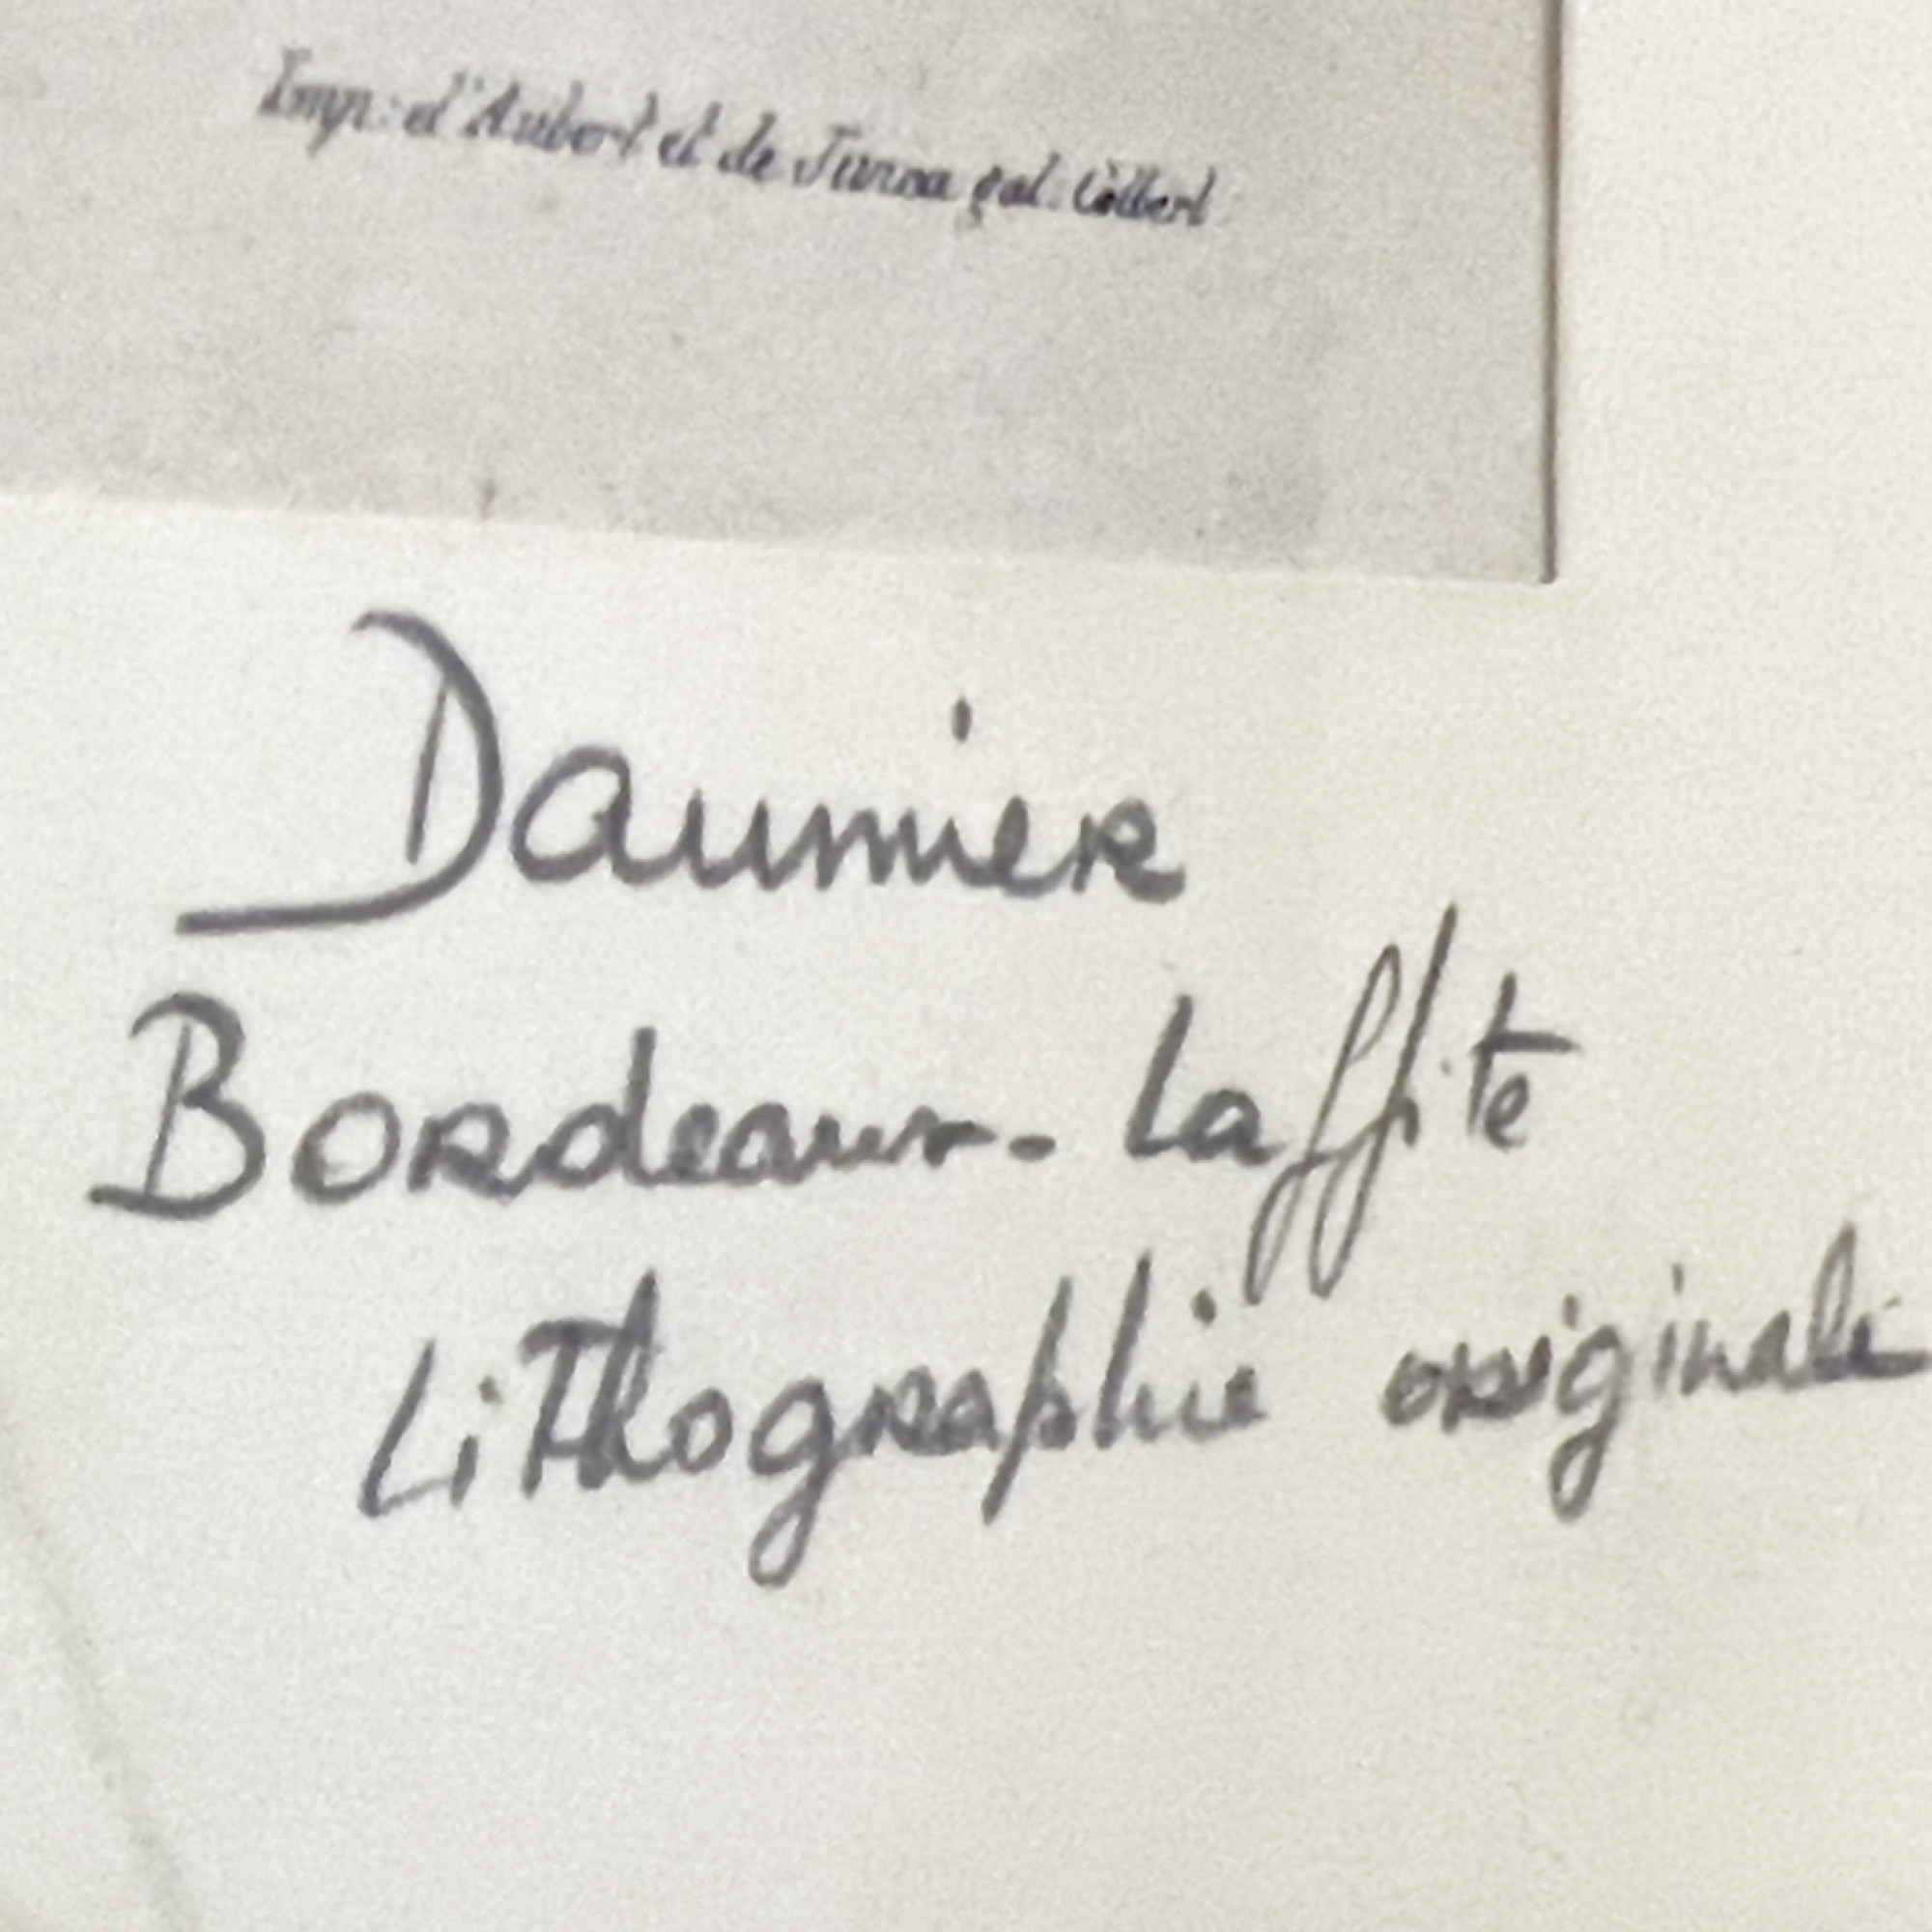 Imp: d'Aubert et de Junca gal. Colbert
Daumier
Bordeaux - Laffite
Lithographie originale